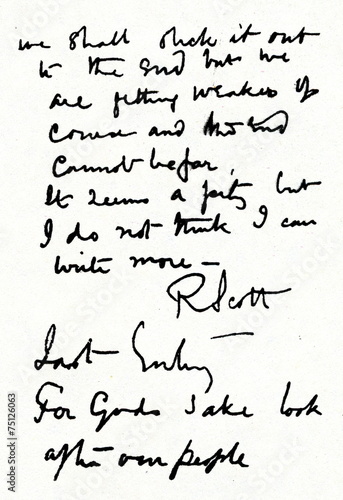 we shall stick it out
to the end but we
are getting weaker of
course and the end
cannot be far,
It seems a pity but
I do not think I can
write more –
R Scott
Last Entry
For Gods sake look
after our people
Adobe Stock | #75126063